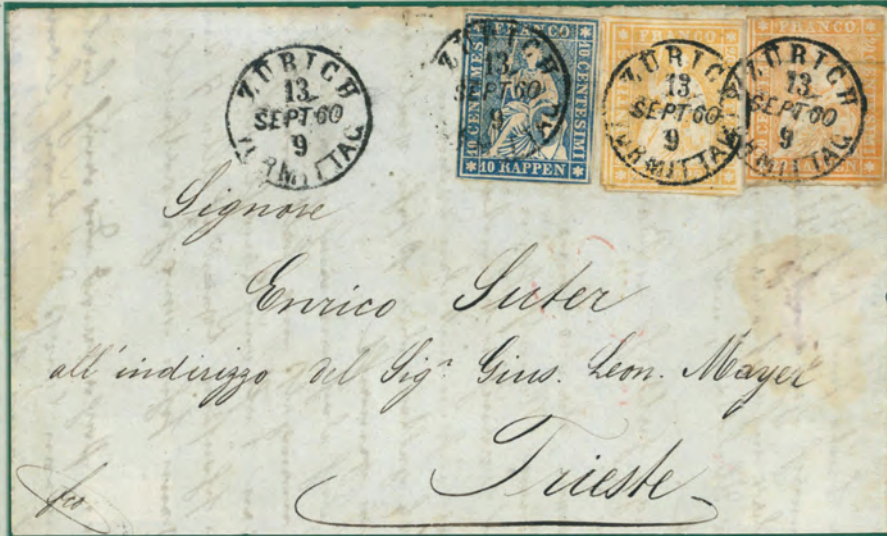 ZÜRICH
13
SEPT 60
9
VORMITTAG
FRANCO
10 CENTIMES
10 CENTESIMI
10 RAPPEN
ZÜRICH
13
SEPT 60
9
FRANCO
ZÜRICH
13
SEPT 60
9
VORMITTAG
FRANCO
ZÜRICH
13
SEPT 60
9
VORMITTAG
Signore
Enrico Suter
all'indirizzo del Sigr. Gius. Leon. Mayer
Trieste
fco